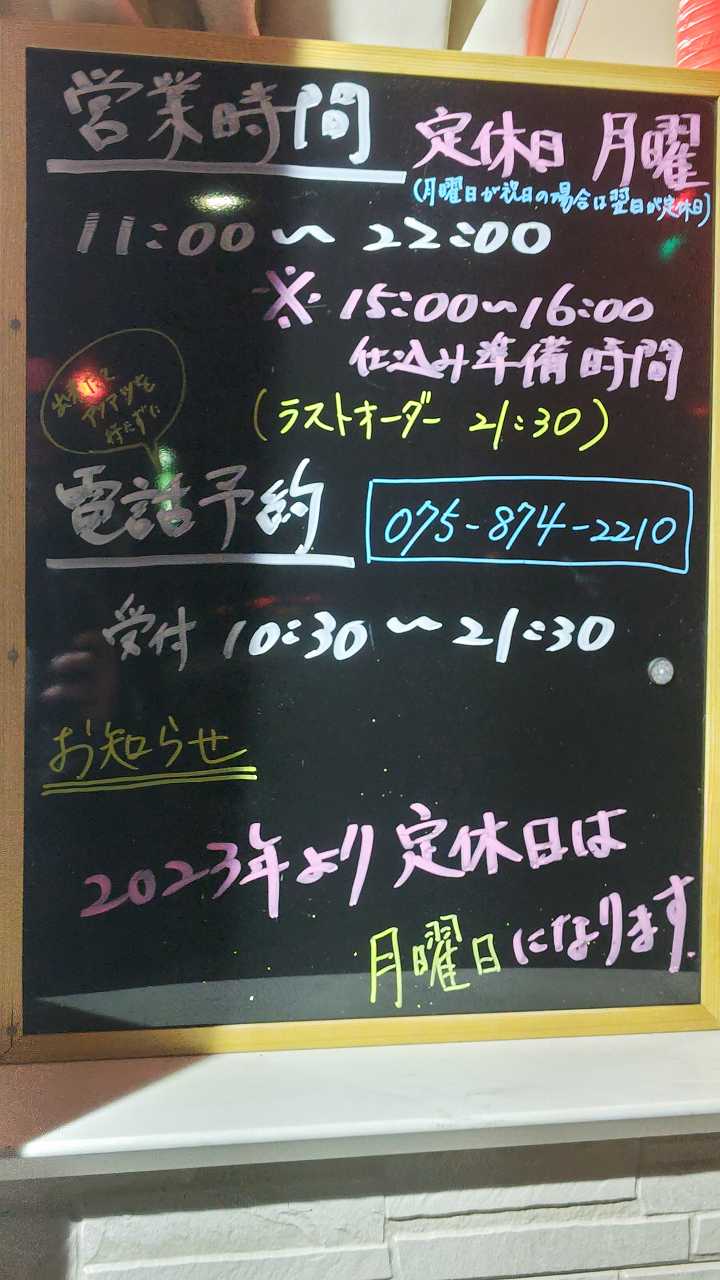 営業時間
定休日 月曜
(月曜日が祝日の場合は翌日が定休日)
11:00〜22:00
※ 15:00〜16:00
仕込み準備時間
(ラストオーダー 21:30)
出来たて
アツアツを
待たずに
電話予約
075-874-2210
受付 10:30〜21:30
お知らせ
2023年より 定休日は
月曜日になります.